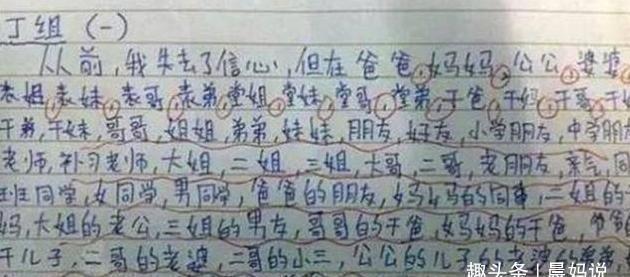 丁组 (一)
从前,我失去了信心,但在爸爸,妈妈,公公,婆婆
表姐,表妹,表哥,表弟,堂姐,堂妹,堂哥,堂弟,干爸,干妈,干哥,干
干弟,干妹,哥哥,姐姐,弟弟,妹妹,朋友,好友,小学朋友,中学朋友
老师,补习老师,大姐,二姐,三姐,大哥,二哥,老朋友,亲气,同
班同学,女同学,男同学,爸爸的朋友,妈妈的同事,二姐的
妈,大姐的老公,三姐的男友,哥哥的干爸,妈妈的干爸,爷爷的
干儿子,二哥的老婆,二哥的小三,公公的儿子
趣头条|晨妈说